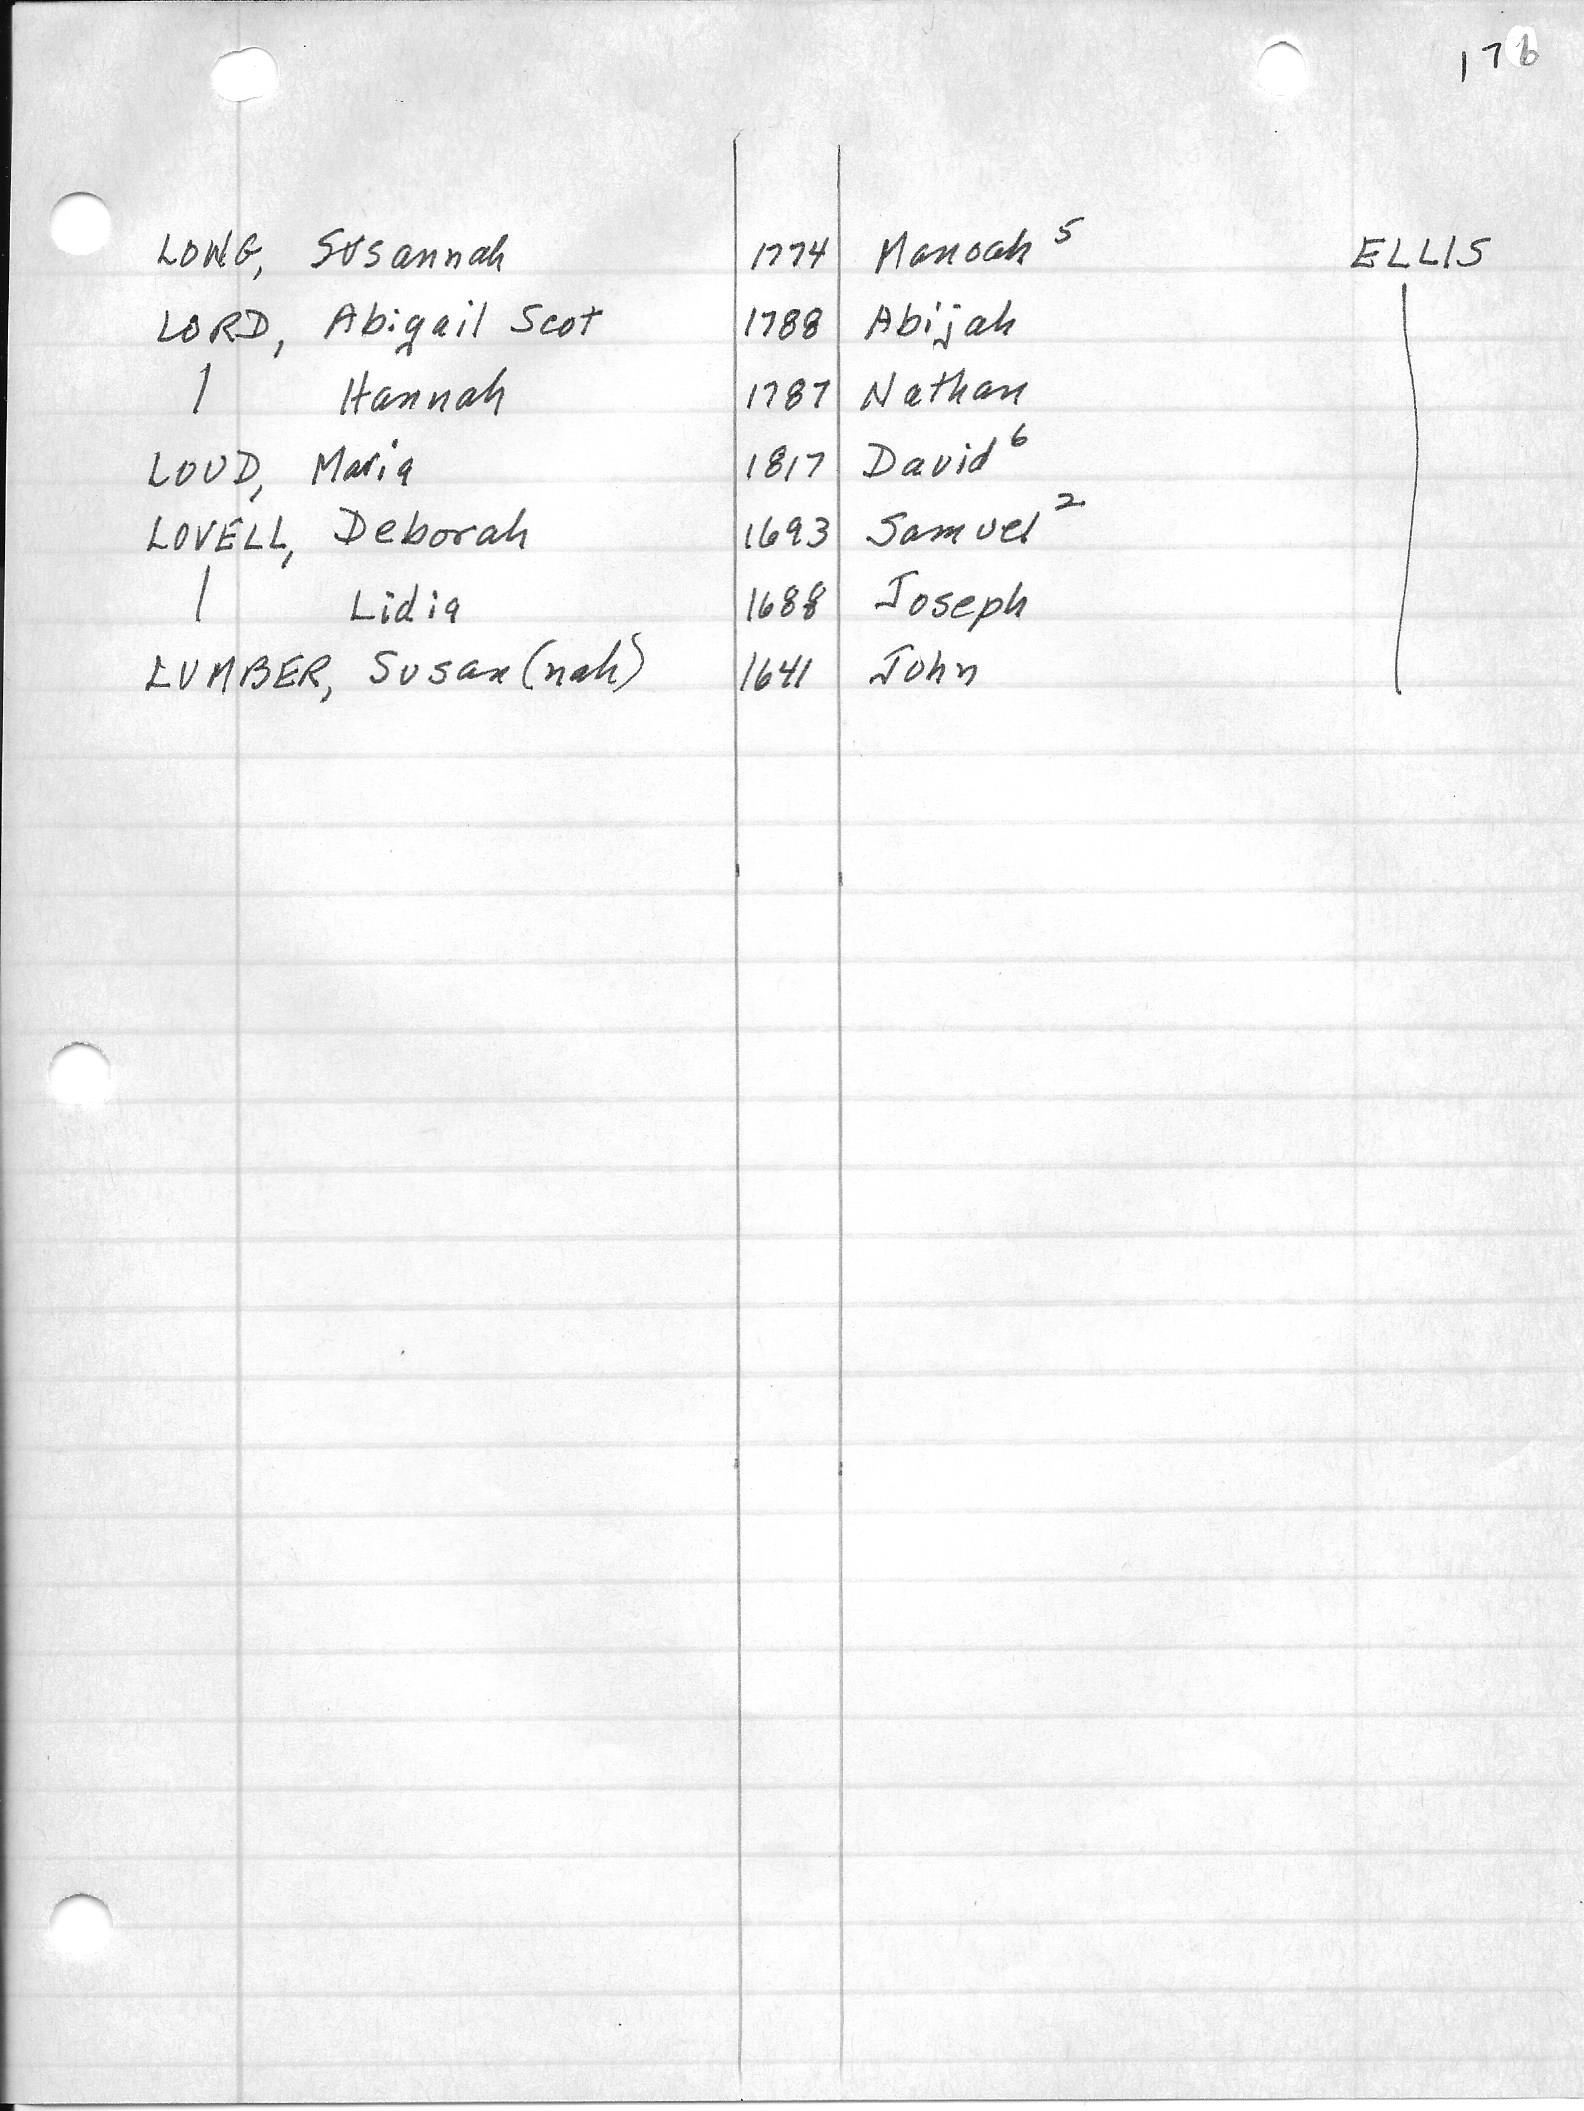 176
LONG, Susannah 1774 Manoah 5 ELLIS
LORD, Abigail Scot 1788 Abijah
| Hannah 1787 Nathan
LOUD, Maria 1817 David 6
LOVELL, Deborah 1693 Samuel 2
| Lidia 1688 Joseph
LUMBER, Susan(nah) 1641 John